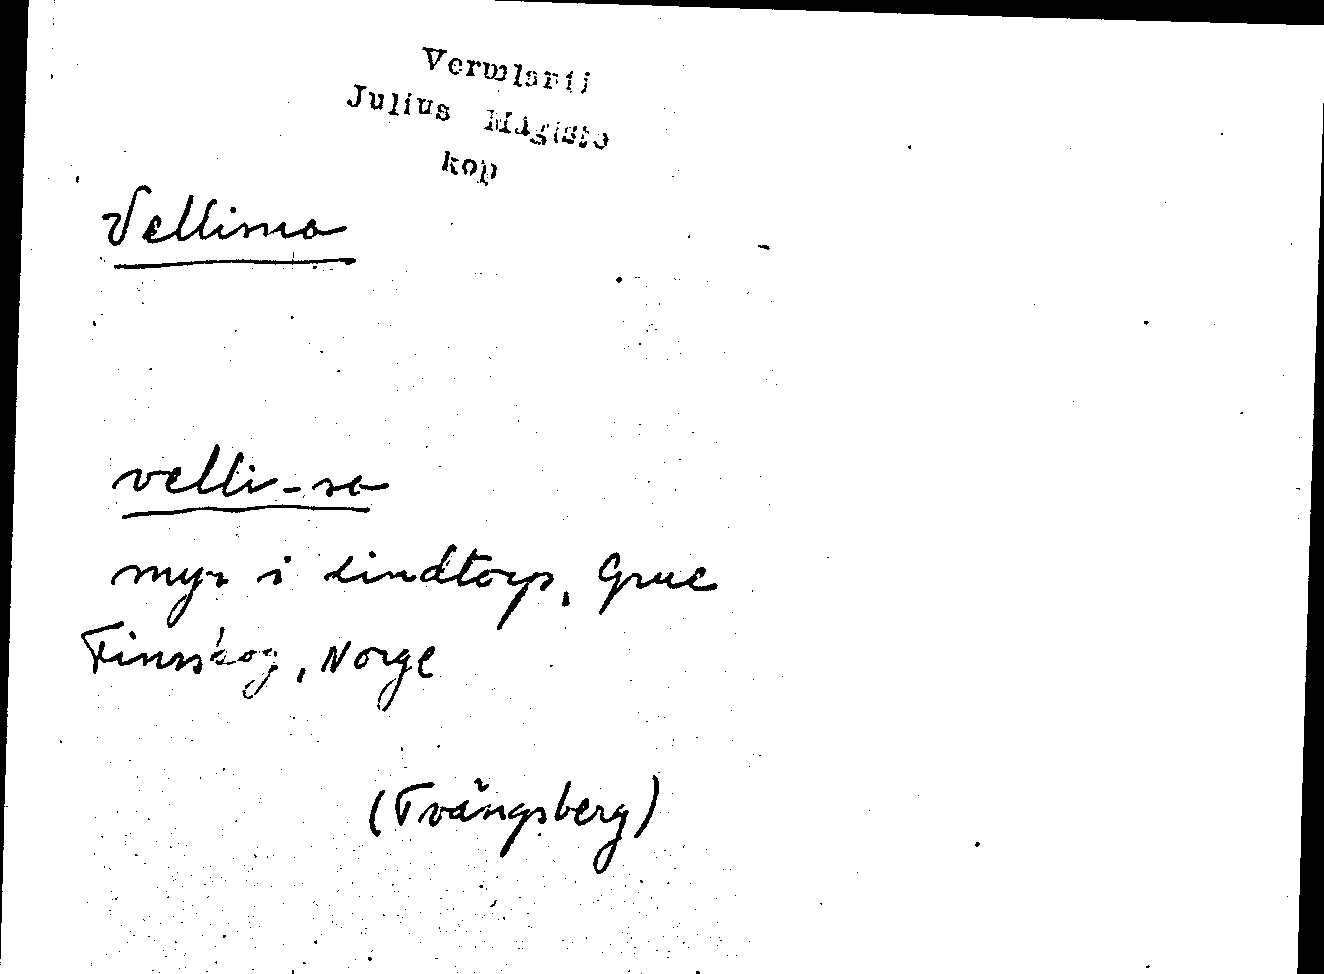 Vermlanti
Julius Mägiste
kop
Vellisuo
velli-so
myr i Lindtorp, Grue
Finnskog, Norge
(Tvängsberg)